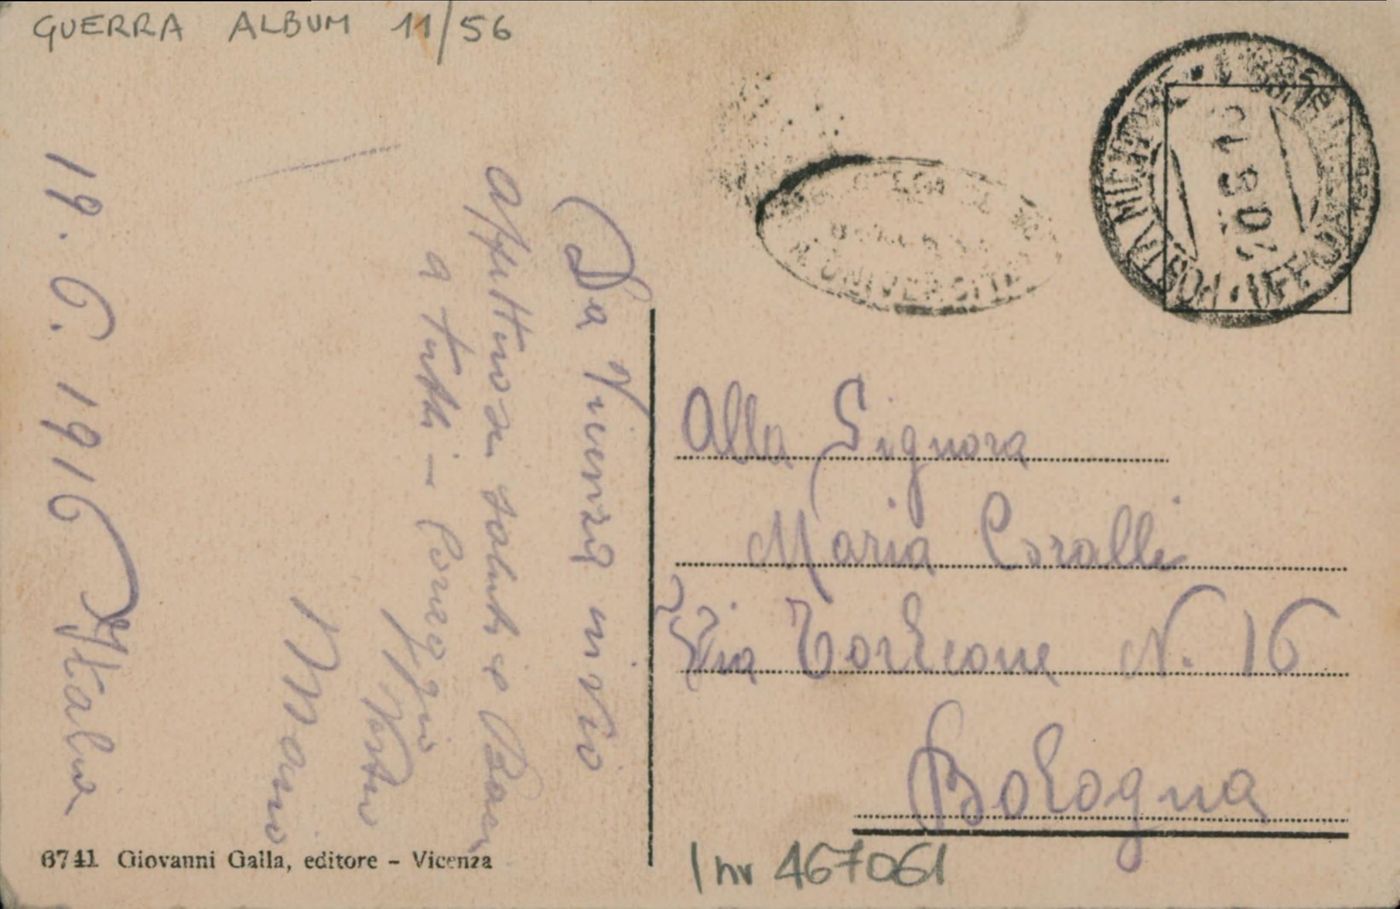 GUERRA ALBUM 11/56
19. 6. 1916 Italia
Da Vicenza invio
affettuosi saluti e Baci
a tutti - Coraggio
Vostro
Mario
6741 Giovanni Galla, editore - Vicenza
R. UNIVERSITA
POSTA MILITARE
20.6.16
Alla Signora
Maria Coralli
Via Torleone N. 16
Bologna
Inv 467061